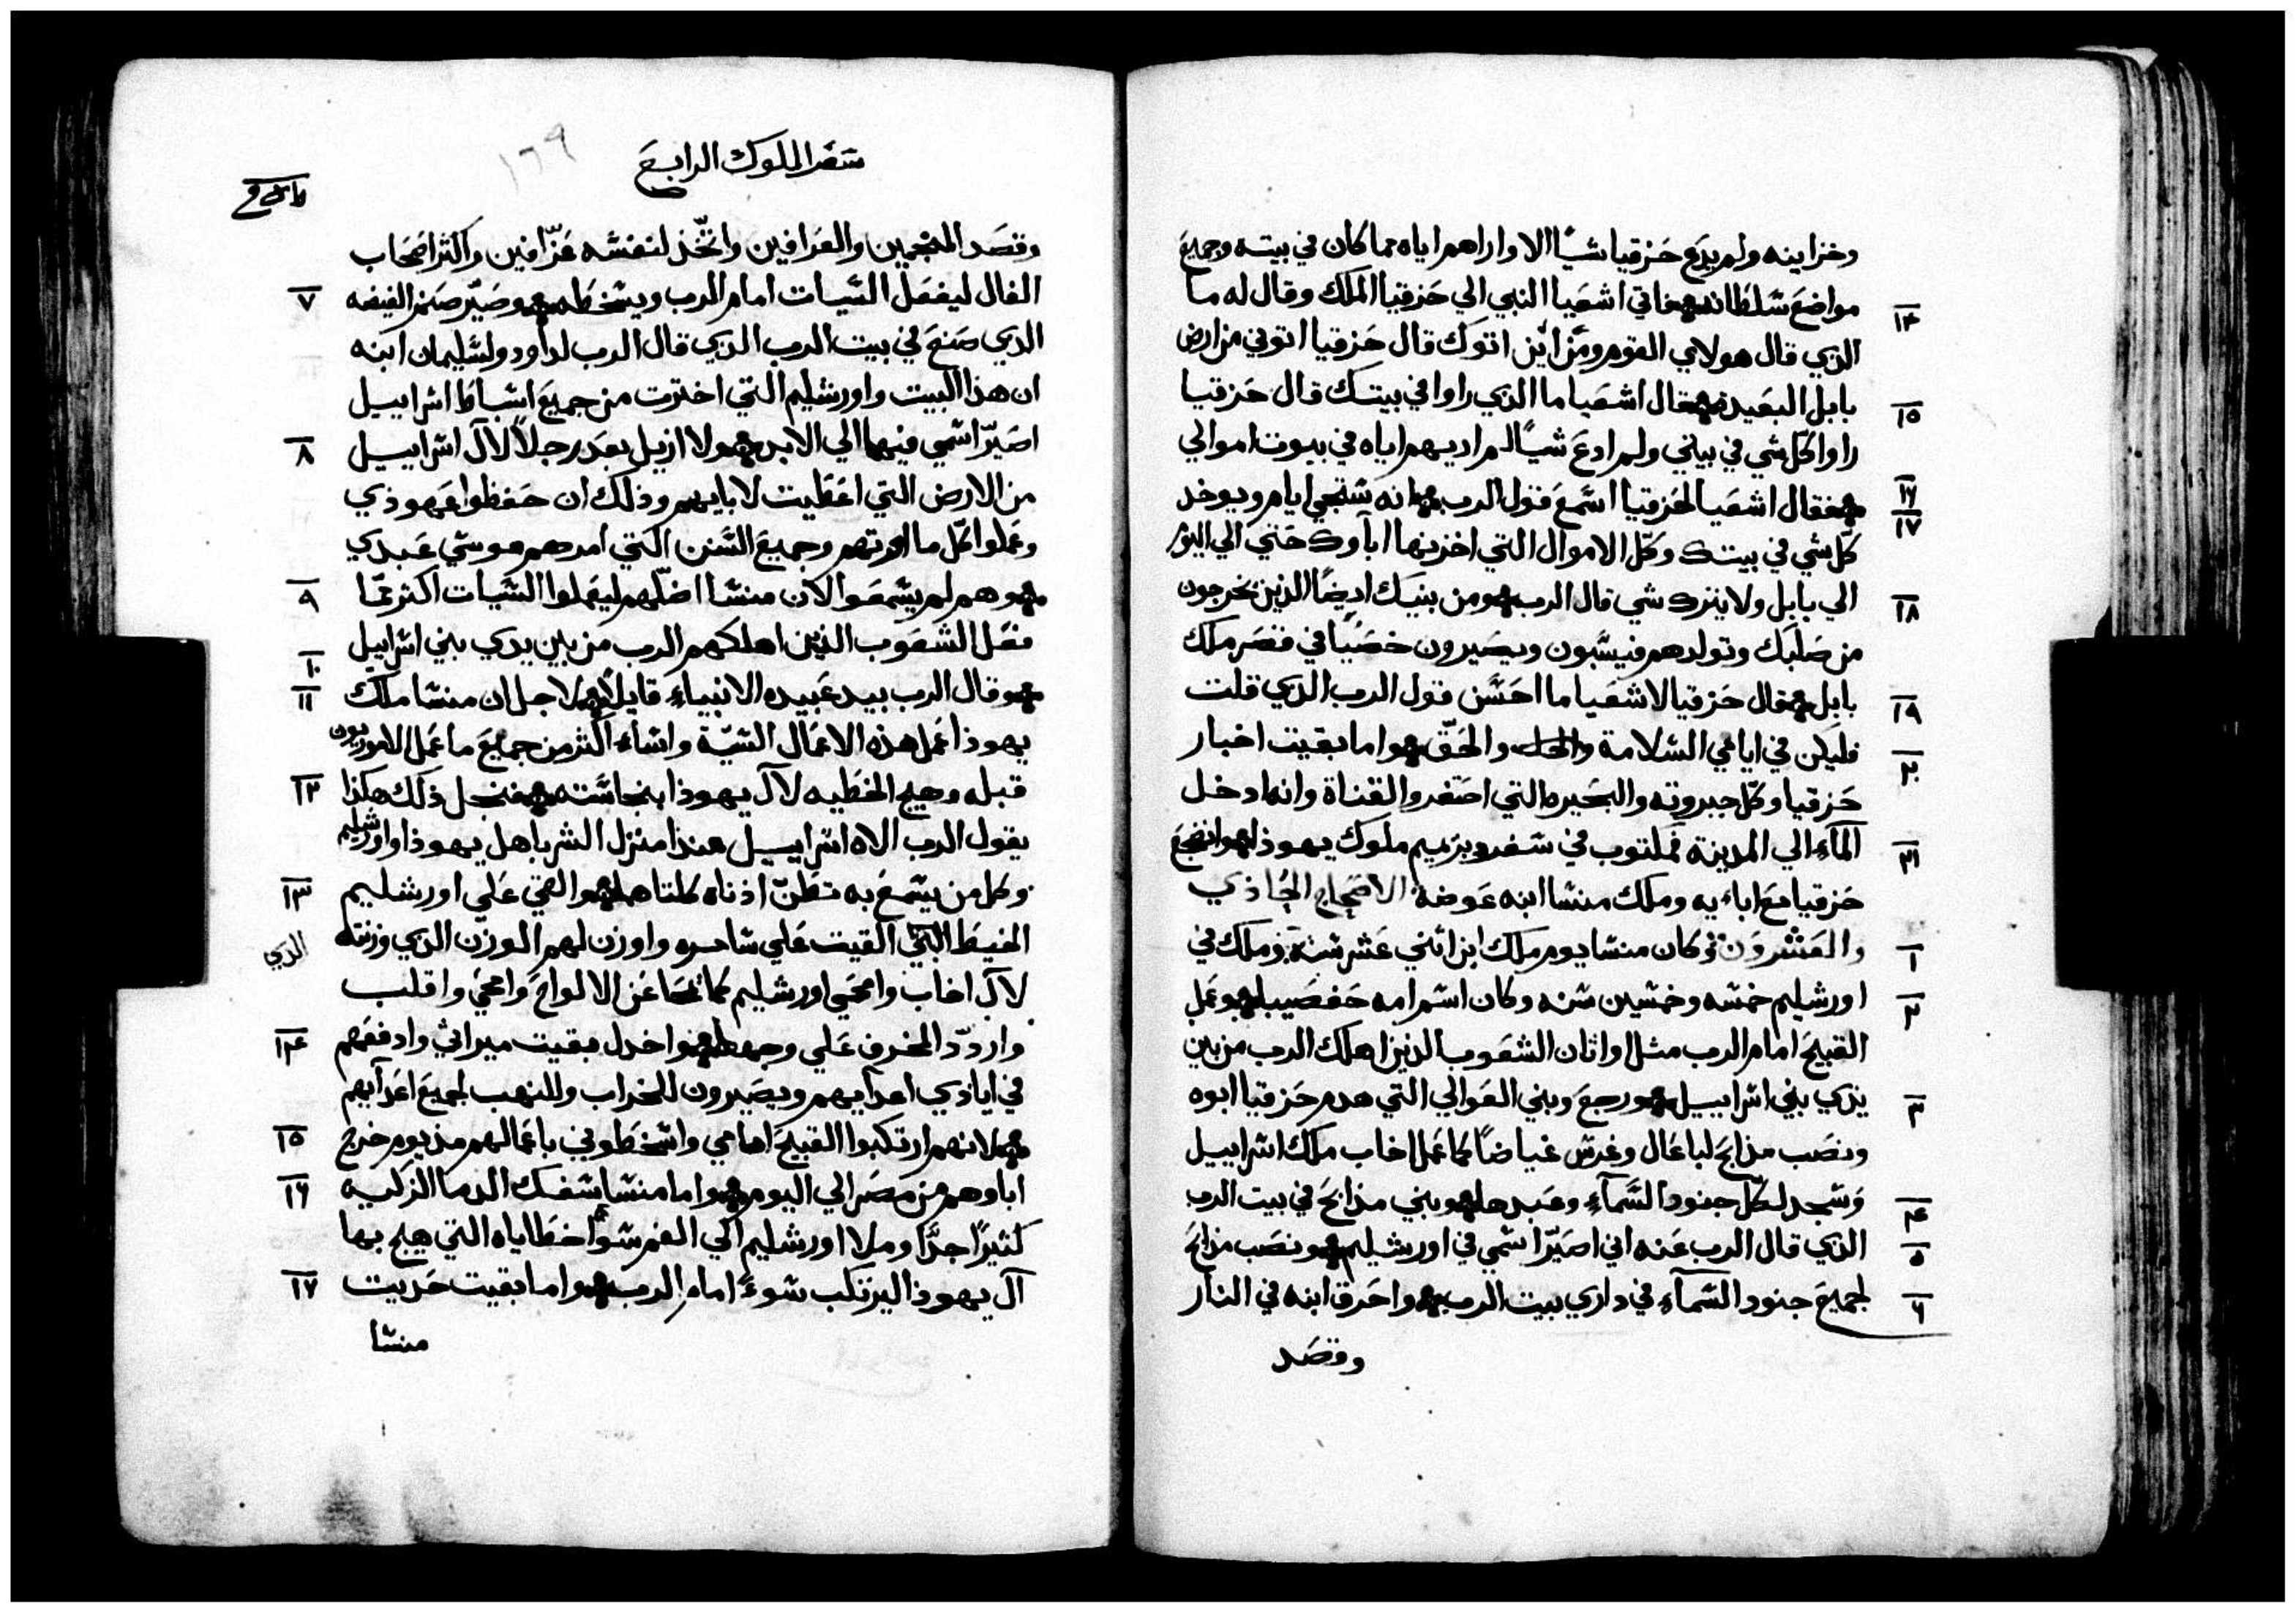 وخزاينه ولم يدع حزقيا شيًا الا واراهم اياه مما كان في بيته وجميع
١٤ مواضع سلطانه فاتي اشعيا النبي الي حزقيا الملك وقال له ما
الذي قال هولاي القوم ومن اين اتوك قال حزقيا اتوني من ارض
١٥ بابل البعيده فقال اشعيا ما الذي راوا في بيتك قال حزقيا
راوا كل شي في بيتي ولم ادع شيًا لم اديهم اياه في بيوت اموالي
١٦ فقال اشعيا لحزقيا اسمع قول الرب انه ستجي ايام ويوخد
١٧ كل شي في بيتك وكل الاموال التي اخزنها اباوك حتي الي اليوم
١٨ الي بابل ولا يترك شي قال الرب ومن بنيك ايضًا الذين يخرجون
من صلبك وتولدهم فيسبون ويصيرون خصيًا في قصر ملك
١٩ بابل فقال حزقيا لاشعيا ما احسن قول الرب الذي قلت
٢٠ فليكن في ايامي السلامة والحق واما بقيت اخبار
حزقيا وكل جبروته والبحيره التي احتفر والقناة وانه ادخل
٢١ المآء الي المدينة فمكتوب في سفر دبريميم ملوك يهوذا واضجع
حزقيا مع اباءيه وملك منشا ابنه عوضه الاصحاح الحادي
١ والعشرون وكان منشا يوم ملك ابن اثني عشر سنة وملك في
٢ اورشليم خمسه وخمسين سنه وكان اسم امه حفصيبا وعمل
القبيح امام الرب مثل اوثان الشعوب الذين اهلك الرب من بين
٣ يدي بني اسراييل ورجع وبني العوالي التي هدم حزقيا ابوه
ونصب مذابح لباعال وغرس غياضًا كما عمل اخاب ملك اسراييل
٤ وسجد لكل جنود السمآء وعبدها وبني مذابح في بيت الرب
٥ الذي قال الرب عنه اني اصيّر اسمي في اورشليم ونصب مذابح
٦ لجميع جنود السمآء في داري بيت الرب واحرق ابنه في النار
وقصد
سفر الملوك الرابع
١٦٩
وقصد المنجمين والعرافين واتّخذ لنفسه عزّافين واكثر اصحاب
٧ الفال ليفعل السيات امام الرب ويسخطه وصيّر صنم الغيضه
الذي صنع في بيت الرب الذي قال الرب لداود ولسليمان ابنه
ان هذا البيت واورشليم التي اخترت من جميع اسباط اسراييل
٨ اصيّر اسمي فيهما الي الابد ولا ازيل بعد رجلاً لآل اسراييل
من الارض التي اعطيت لابايهم وذلك ان حفظوا عهوذي
وعملوا كل ما امرتهم وجميع السنن التي امرهم موسي عبدي
٩ وهم لم يسمعوا لان منشا اضلّهم ليعملوا السيات اكثر عمّا
فعل الشعوب الذين اهلكهم الرب من بين يدي بني اسراييل
١٠ وقال الرب بيد عبيده الانبياء قايلًا
١١ لاجل ان منشا ملك
يهوذا عمل هذه الاعمال السّيّة واساء اكثر من جميع ما عمل الاموريون
١٢ قبله وهيج الخطيه لآل يهوذا بنجاسته فنجل ذلك هكذا
يقول الرب الاه اسراييل هنذا منزل الشر باهل يهوذا واورشليم
١٣ وكل من يسمع به تطنّ اذناه كلتاهما والقي علي اورشليم
الخيط الذي القيت علي شامره واوزن لهم الوزن الذي وزنته الذي
لآل اخاب وامحي اورشليم كما تمحا عن الالواح وامحي واقلب
١٤ واردّ المخرف علي وجهها واخذل بقيت ميراثي وادفعهم
في ايادي اعدايهم ويصيرون للخراب وللنهب لجميع اعدآيهم
١٥ لانهم ارتكبوا القبيح امامي واسخطوني باعمالهم منذ يوم خرج
١٦ اباوهم من مصر الي اليوم واما منشا سفك الدما الزكيه
كثيرًا جدًّا وملا اورشليم الي الفم سوا خطاياه التي هيج بها
١٧ آل يهوذا ليرتكب سوءً امام الرب واما بقيت حديت
منشا